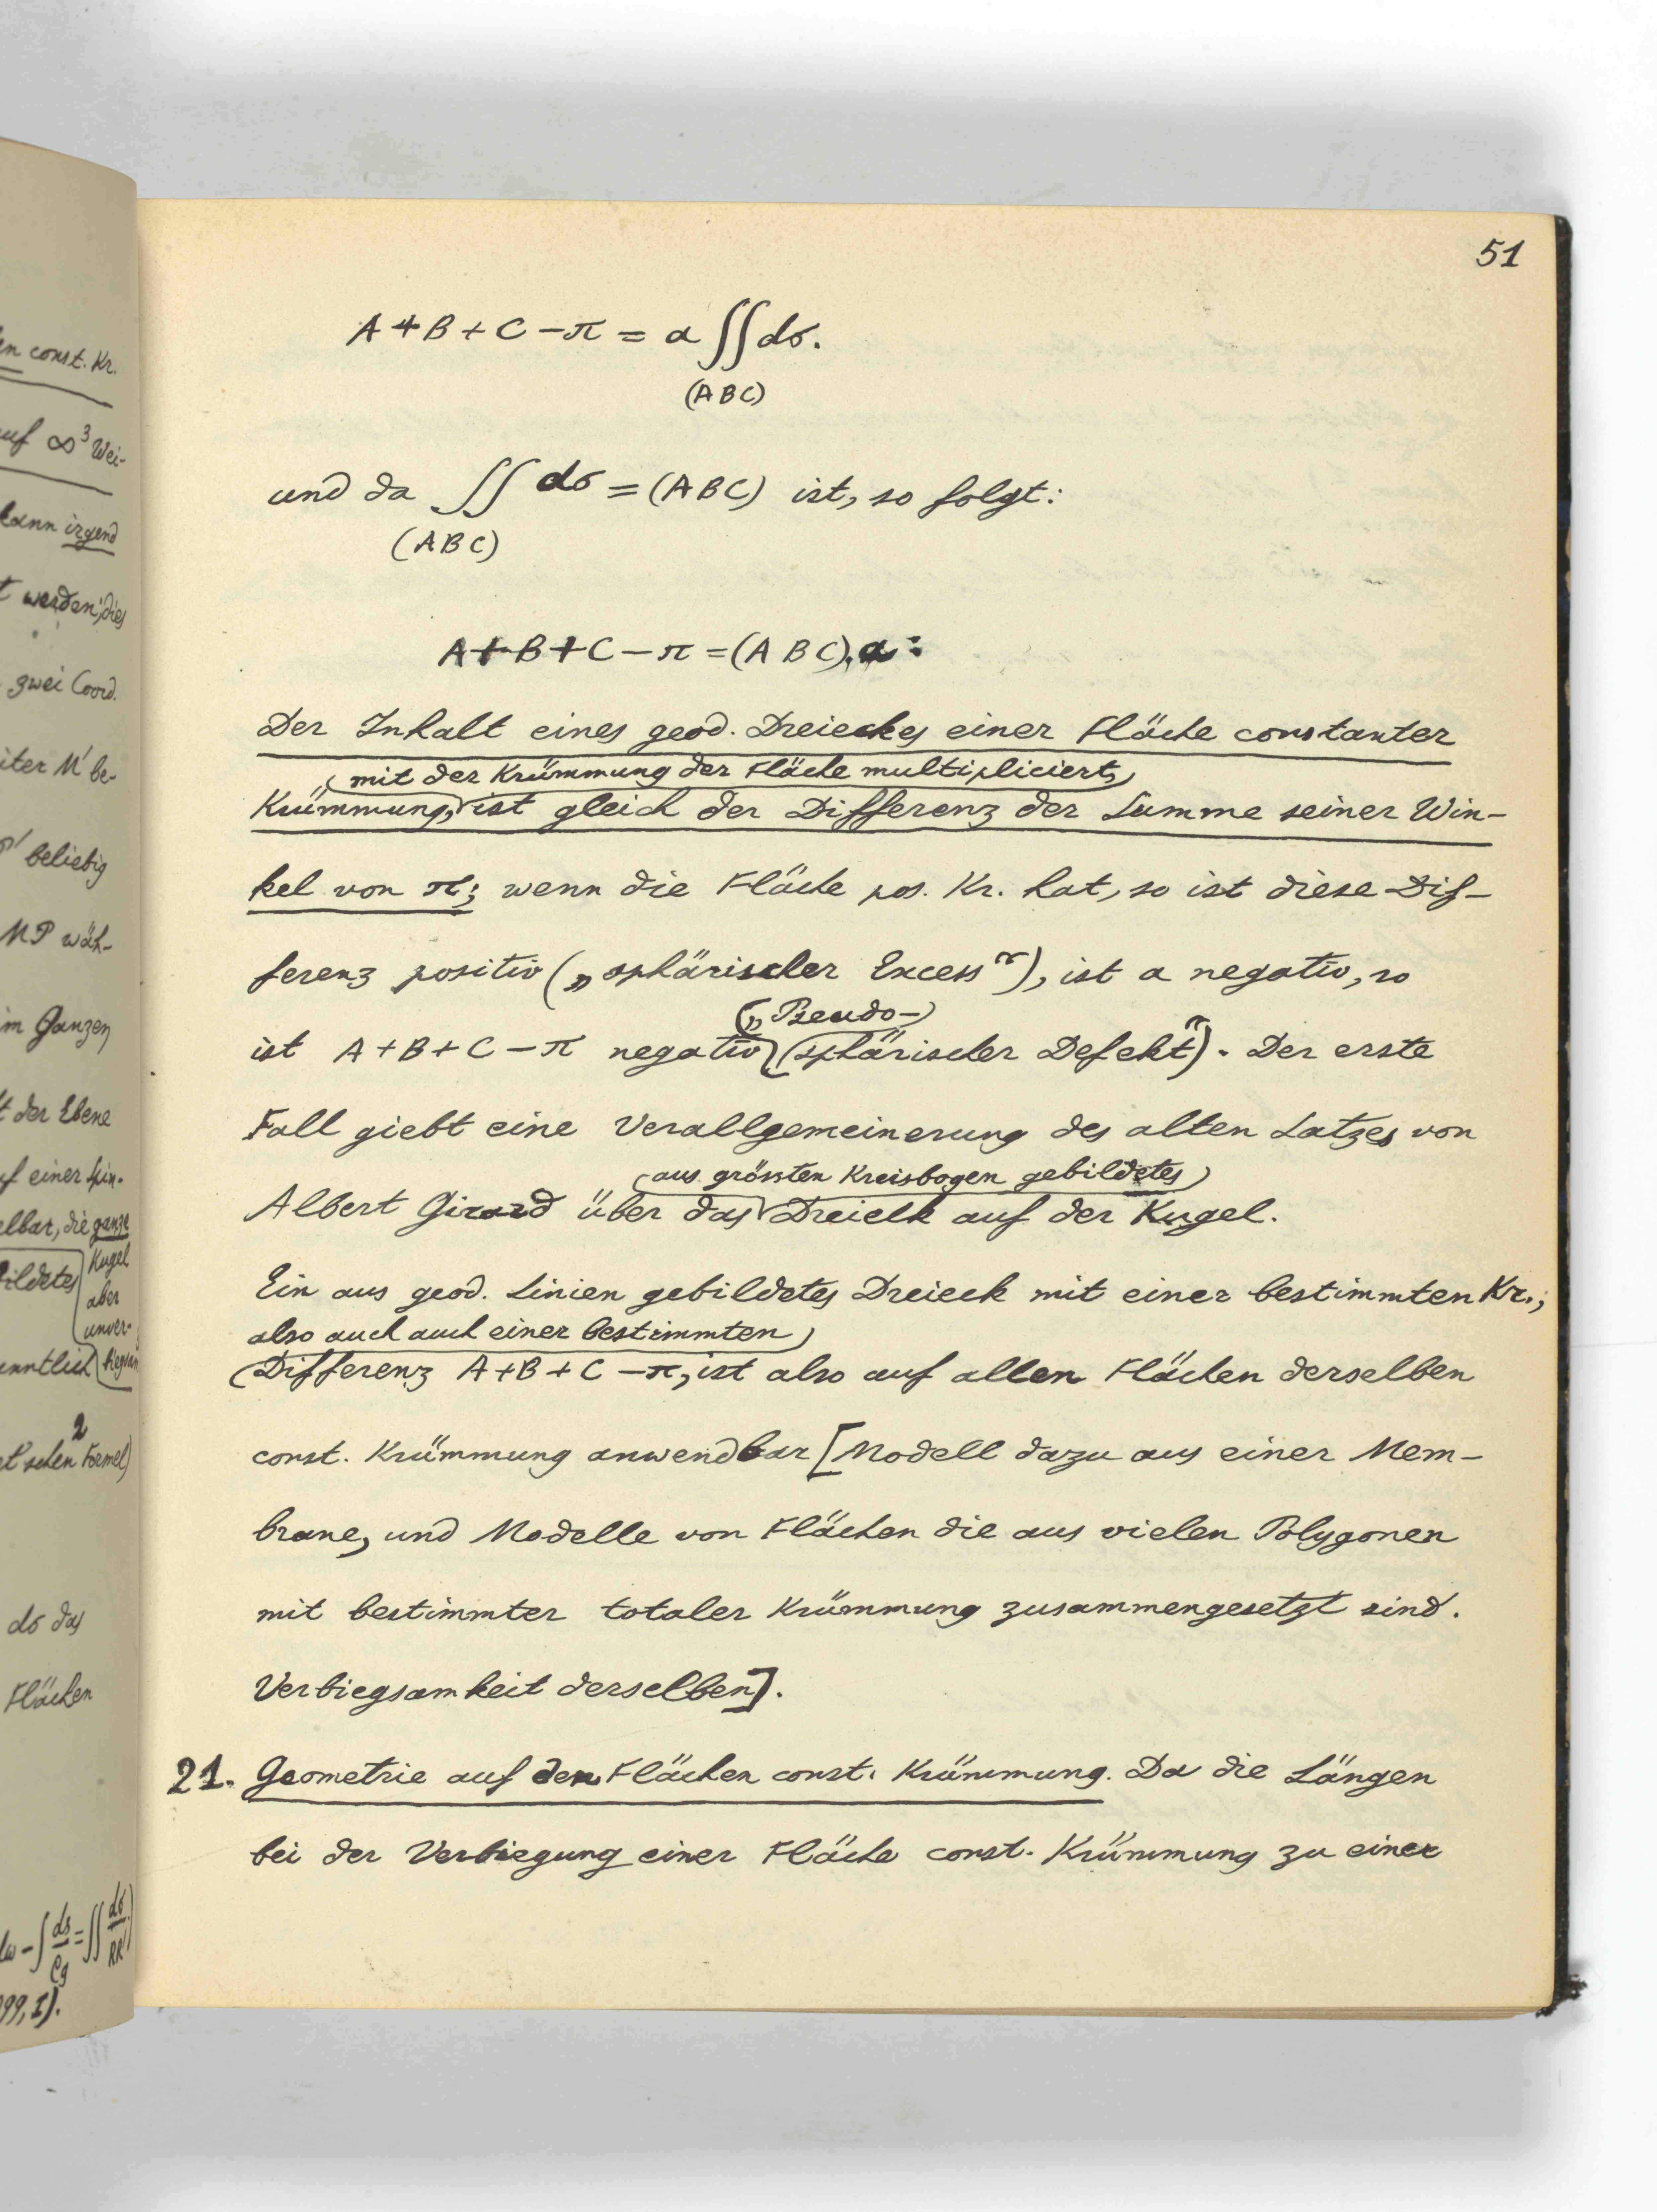 en const. Kr.
auf ∞³ Wei-
kann irgend
t werden; dies
zwei Coord.
iter M' be-
P' beliebig
MP wäh-
im Ganzen
t der Ebene
uf einer Spin-
elbar, die ganze
Kugel
bildetes
aber
unver-
nntlich biegsam
2
et'schen Formel)
dσ das
Flächen
dω - ∫ ds/ρg = ∫∫ dσ/RR'
99, I).
51
A + B + C - π = a ∫∫ dσ.
(ABC)
und da ∫∫ dσ = (ABC) ist, so folgt:
(ABC)
A + B + C - π = (ABC).a:
Der Inhalt eines geod. Dreieckes einer Fläche constanter
mit der Krümmung der Fläche multipliciert,
Krümmung, ist gleich der Differenz der Summe seiner Win-
kel von π; wenn die Fläche pos. Kr. hat, so ist diese Dif-
ferenz positiv („sphärischer Excess“), ist a negativ, so
(„Pseudo-
ist A + B + C - π negativ (sphärischer Defekt“). Der erste
Fall giebt eine Verallgemeinerung des alten Satzes von
aus grössten Kreisbogen gebildetes
Albert Girard über das Dreieck auf der Kugel.
Ein aus geod. Linien gebildetes Dreieck mit einer bestimmten Kr.,
also auch auch einer bestimmten
Differenz A + B + C - π, ist also auf allen Flächen derselben
const. Krümmung anwendbar [Modell dazu aus einer Mem-
brane, und Modelle von Flächen die aus vielen Polygonen
mit bestimmter totaler Krümmung zusammengesetzt sind.
Verbiegsamkeit derselben].
21. Geometrie auf den Flächen const. Krümmung. Da die Längen
bei der Verbiegung einer Fläche const. Krümmung zu einer